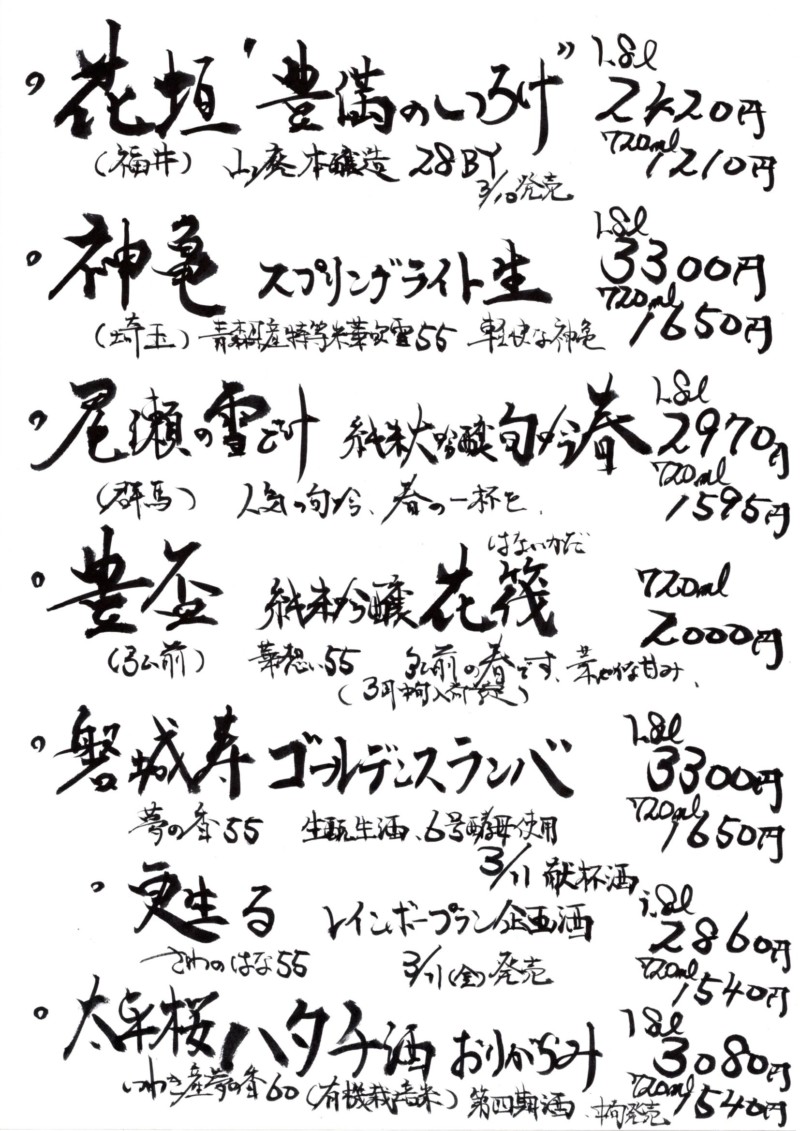 花垣 "豊満のいろけ" 1.8l 2420円
(福井) 山廃本醸造 28BY 720ml 1210円
3/10発売
神亀 スプリングライト生 1.8l 3300円
(埼玉) 青森県産特等米華吹雪55 軽快な神亀 720ml 1650円
尾瀬の雪どけ 純米大吟醸旬吟春 1.8l 2970円
(群馬) 人気の旬吟、春の一杯を、 720ml 1595円
はないかだ
豊盃 純米吟醸 花筏 720ml 2000円
(弘前) 華想い55 弘前の春です、華やかな甘み、
(3月中旬入荷予定)
磐城寿 ゴールデンスランバ 1.8l 3300円
夢の香55 生酛生酒、6号酵母使用 720ml 1650円
3/11 献杯酒
甦る レインボープラン企画酒 1.8l 2860円
さわのはな55 3/11(金)発売 720ml 1540円
太平桜 ハタチ酒 おりがらみ 1.8l 3080円
いわき産夢の香60 (有機栽培米) 第四期酒、中旬発売 720ml 1540円